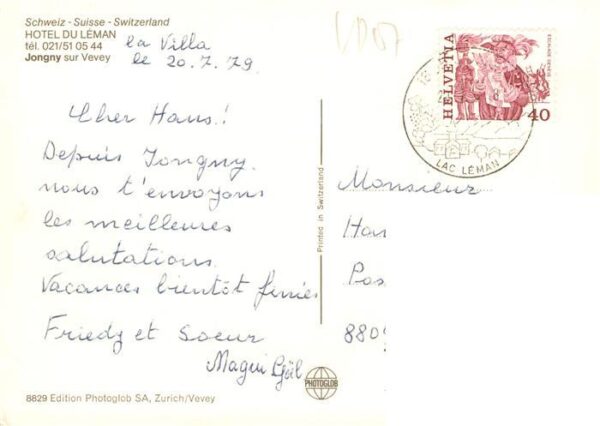 Schweiz - Suisse - Switzerland
HOTEL DU LÉMAN
tél. 021/51 05 44
Jongny sur Vevey
la Villa
le 20.7.79.
HELVETIA
40
LAC LÉMAN
Cher Hans!
Depuis Jongny
nous t'envoyons
les meilleures
salutations.
Vacances bientôt finies
Friedy et Soeur
Magui
Printed in Switzerland
Monsieur
Han
Pos
880
PHOTOGLOB
8829 Edition Photoglob SA, Zurich/Vevey